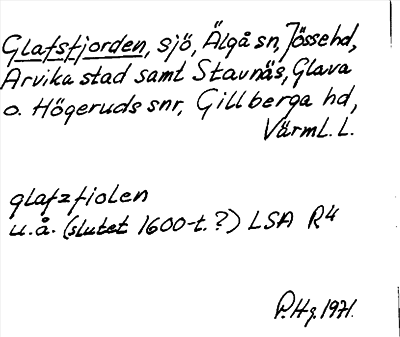 Glafsfjorden, sjö, Älgå sn, Jösse hd,
Arvika stad samt Stavnäs, Glava
o. Högeruds snr, Gillberga hd,
Värml. L.
glafzfiolen
u.å. (slutet 1600-t.?) LSA R4
P.Hg.1971.